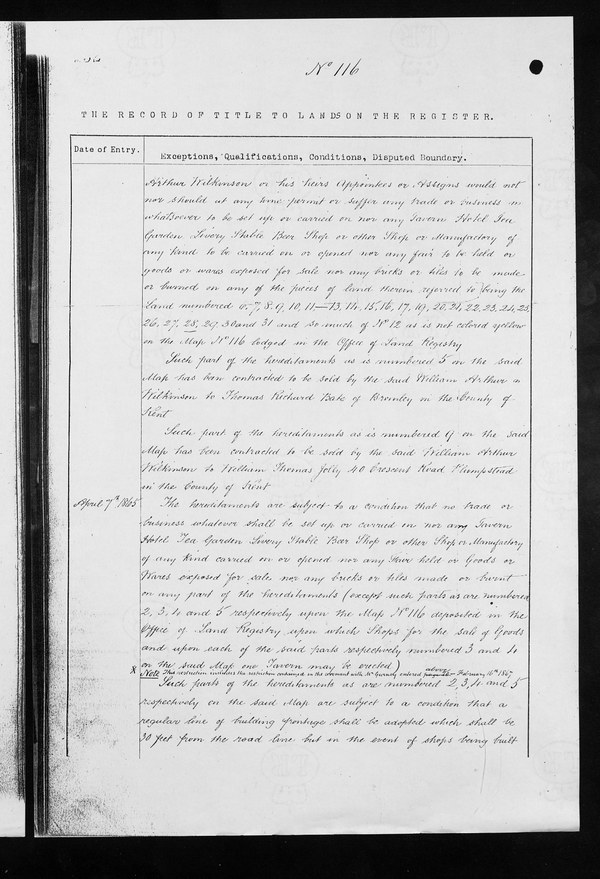 No 116
THE RECORD OF TITLE TO LANDS ON THE REGISTER.
Date of Entry.
Exceptions, Qualifications, Conditions, Disputed Boundary.
Arthur Wilkinson or his heirs Appointees or Assigns would not
nor should at any time permit or suffer any trade or business
whatsoever to be set up or carried on nor any Tavern Hotel Tea
Garden Livery Stable Beer Shop or other Shop or Manufactory of
any kind to be carried on or opened nor any fair to be held or
goods or wares exposed for sale nor any bricks or tiles to be made
or burned on any of the pieces of land therein referred to being the
Land numbered 6, 7, 8, 9, 10, 11 13, 14, 15, 16, 17, 19, 20, 21, 22, 23, 24, 25,
26, 27, 28, 29 30 and 31 and so much of No 12 as is not colored yellow
on the Map No 116 lodged in the Office of Land Registry
Such part of the hereditaments as is numbered 5 on the said
Map has been contracted to be sold by the said William Arthur
Wilkinson to Thomas Richard Bate of Bromley in the County of
Kent
Such part of the hereditaments as is numbered 9 on the said
Map has been contracted to be sold by the said William Arthur
Wilkinson to William Thomas Jolly 40 Crescent Road Plumpstead
in the County of Kent
April 7th 1865
The hereditaments are subject to a condition that no trade or
business whatever shall be set up or carried on nor any Tavern
Hotel Tea Garden Livery Stable Beer Shop or other Shop or Manufactory
of any kind carried on or opened nor any Fair held or Goods or
Wares exposed for sale nor any bricks or tiles made or burnt
on any part of the hereditaments (except such parts as are numbered
2, 3, 4 and 5 respectively upon the Map No 116 deposited in the
Office of Land Registry upon which Shops for the sale of Goods
and upon each of the said parts respectively numbered 3 and 4
on the said Map one Tavern may be erected)
x Note This restriction the restriction contained in the covenant with Mr entered above February 10th 1865
Such parts of the hereditaments as are numbered 2, 3, 4 and 5
respectively on the said Map are subject to a condition that a
regular line of building frontage shall be adopted which shall be
30 feet from the road line but in the event of shops being built